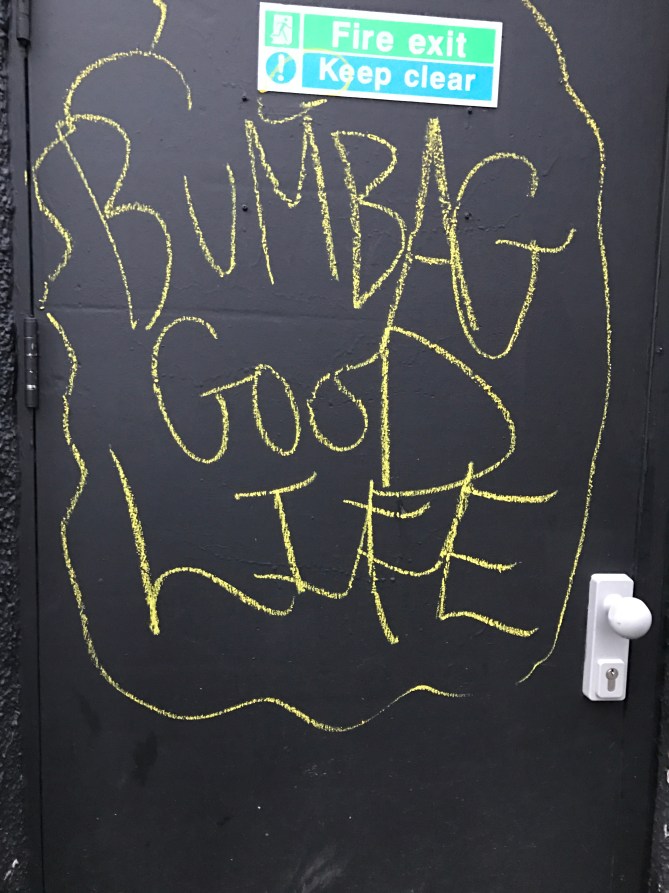 Fire exit
Keep clear
BUMBAG
GOOD
LIFE